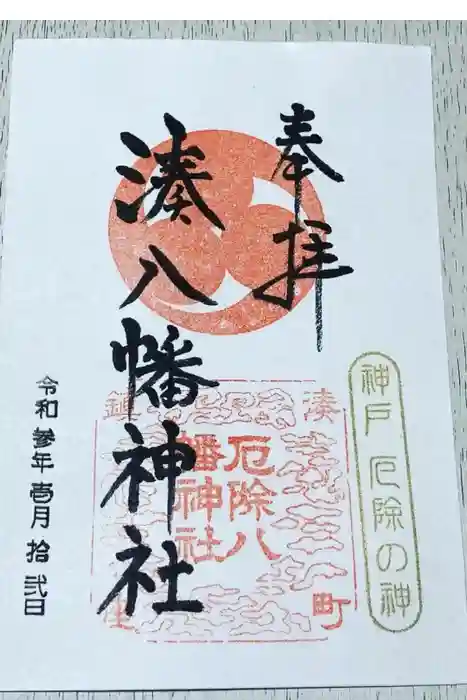 奉拝
湊八幡神社
令和参年壱月拾弐日
神戸 厄除の神
湊町鎮
厄除八幡神社